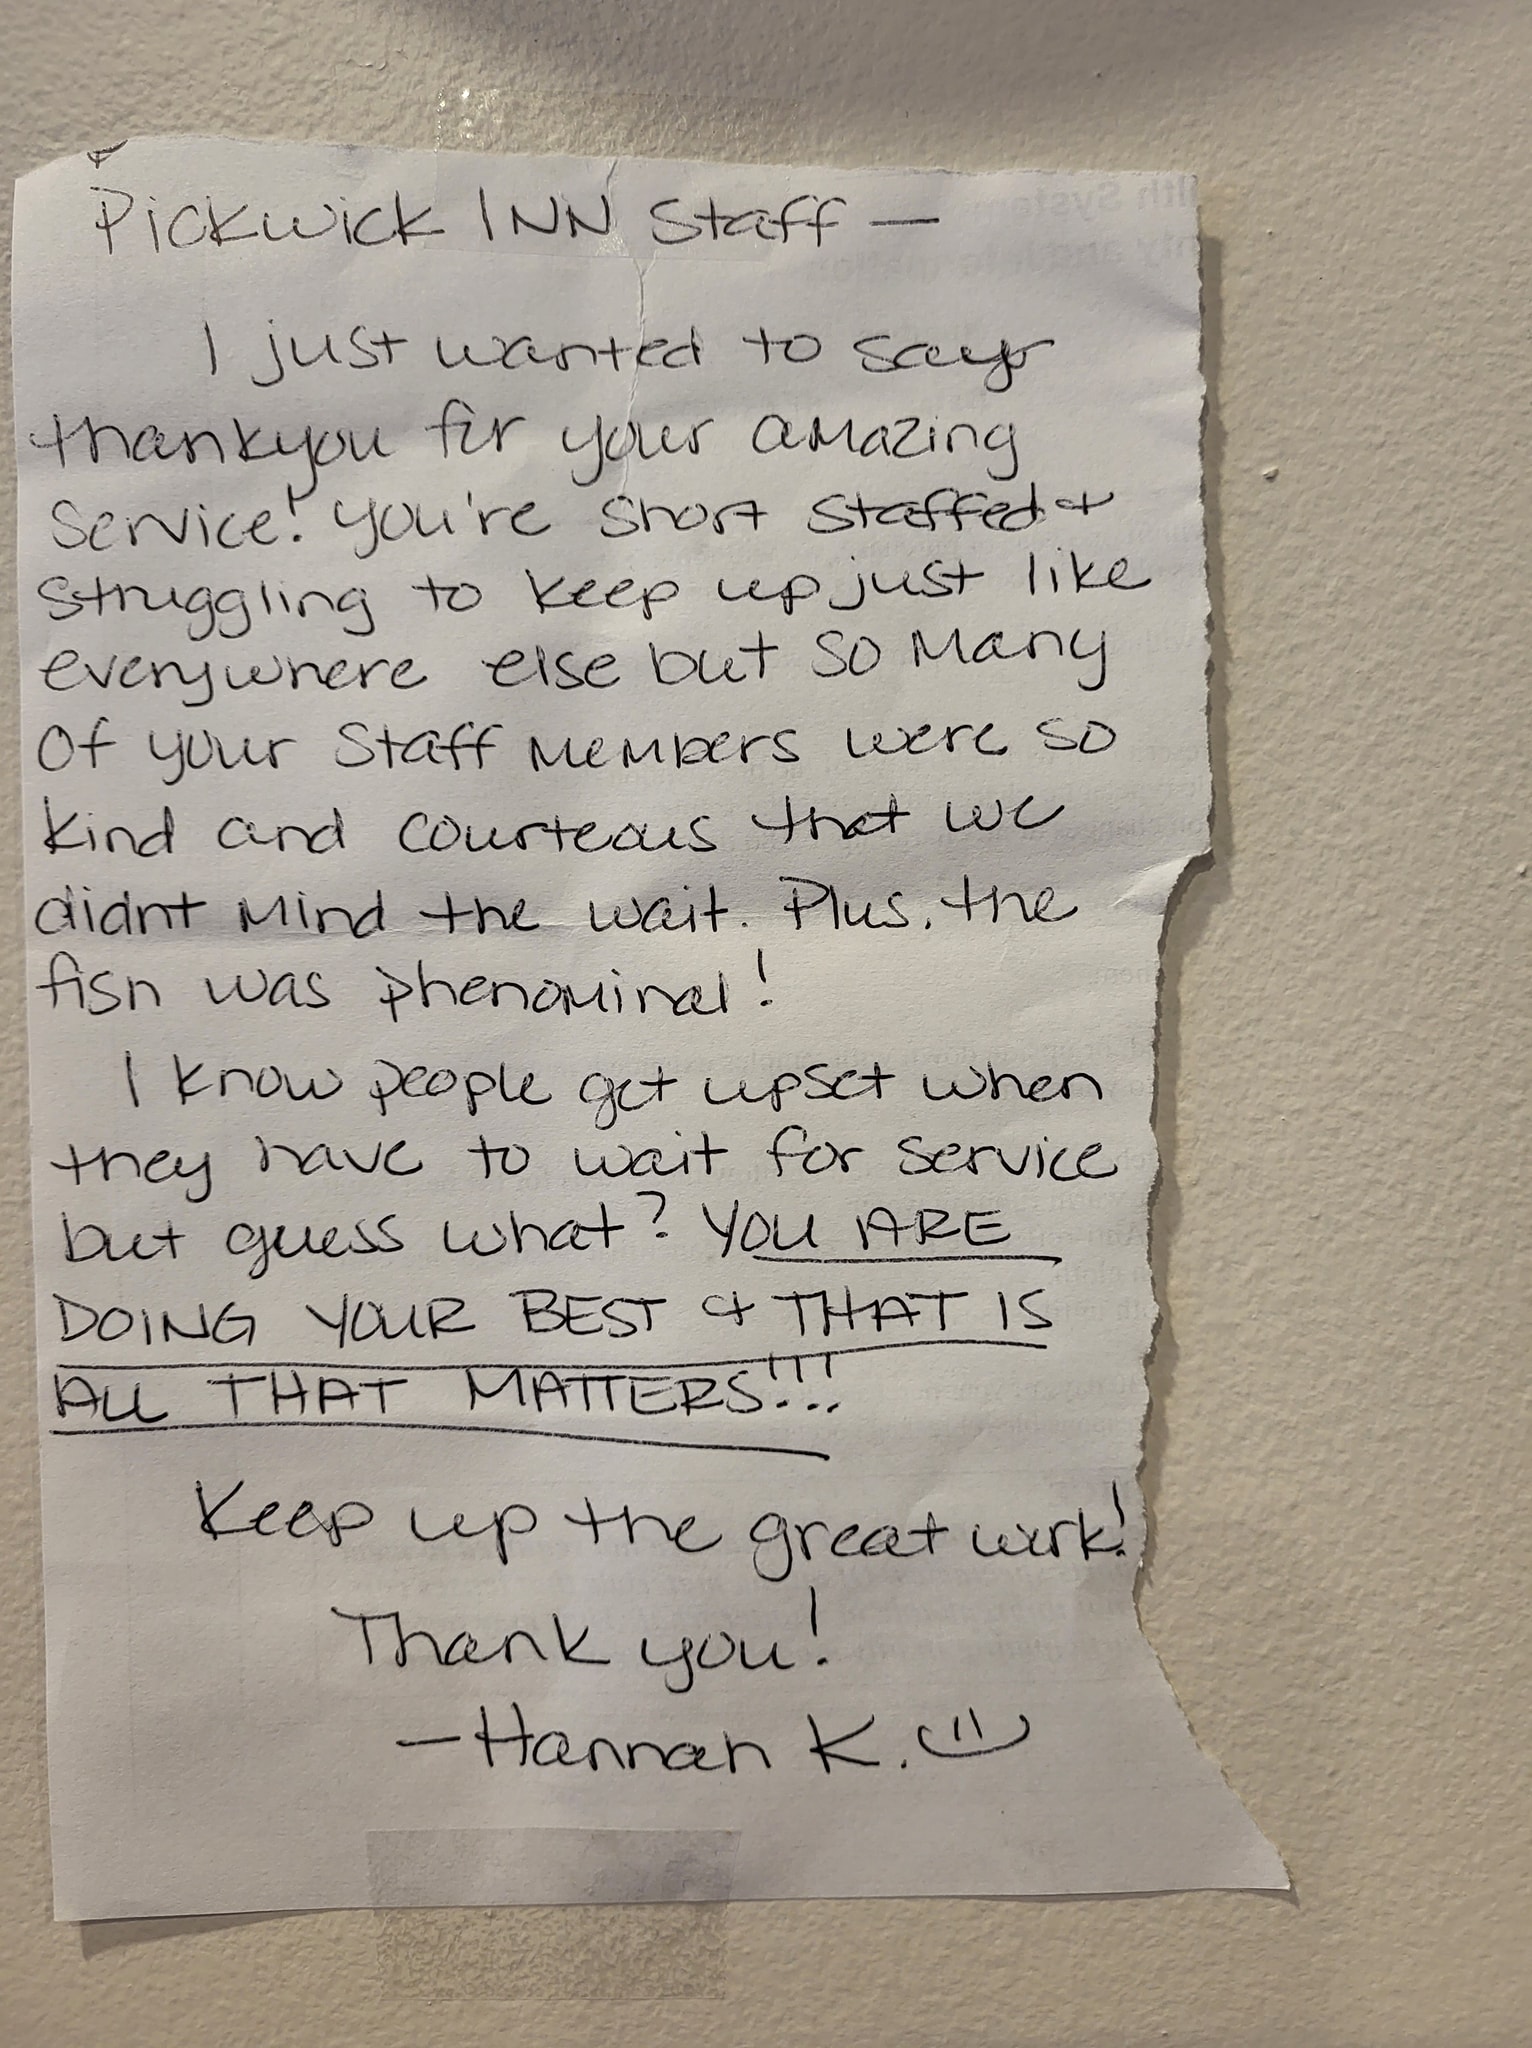 Pickwick INN Staff —
I just wanted to say
thankyou for your amazing
service! You're short staffed &
struggling to keep up just like
everywhere else but so many
of your staff members were so
kind and courteous that we
didnt mind the wait. Plus, the
fish was phenominal!
I know people get upset when
they have to wait for service
but guess what? YOU ARE
DOING YOUR BEST & THAT IS
ALL THAT MATTERS!!!
Keep up the great work!
Thank you!
— Hannah K.